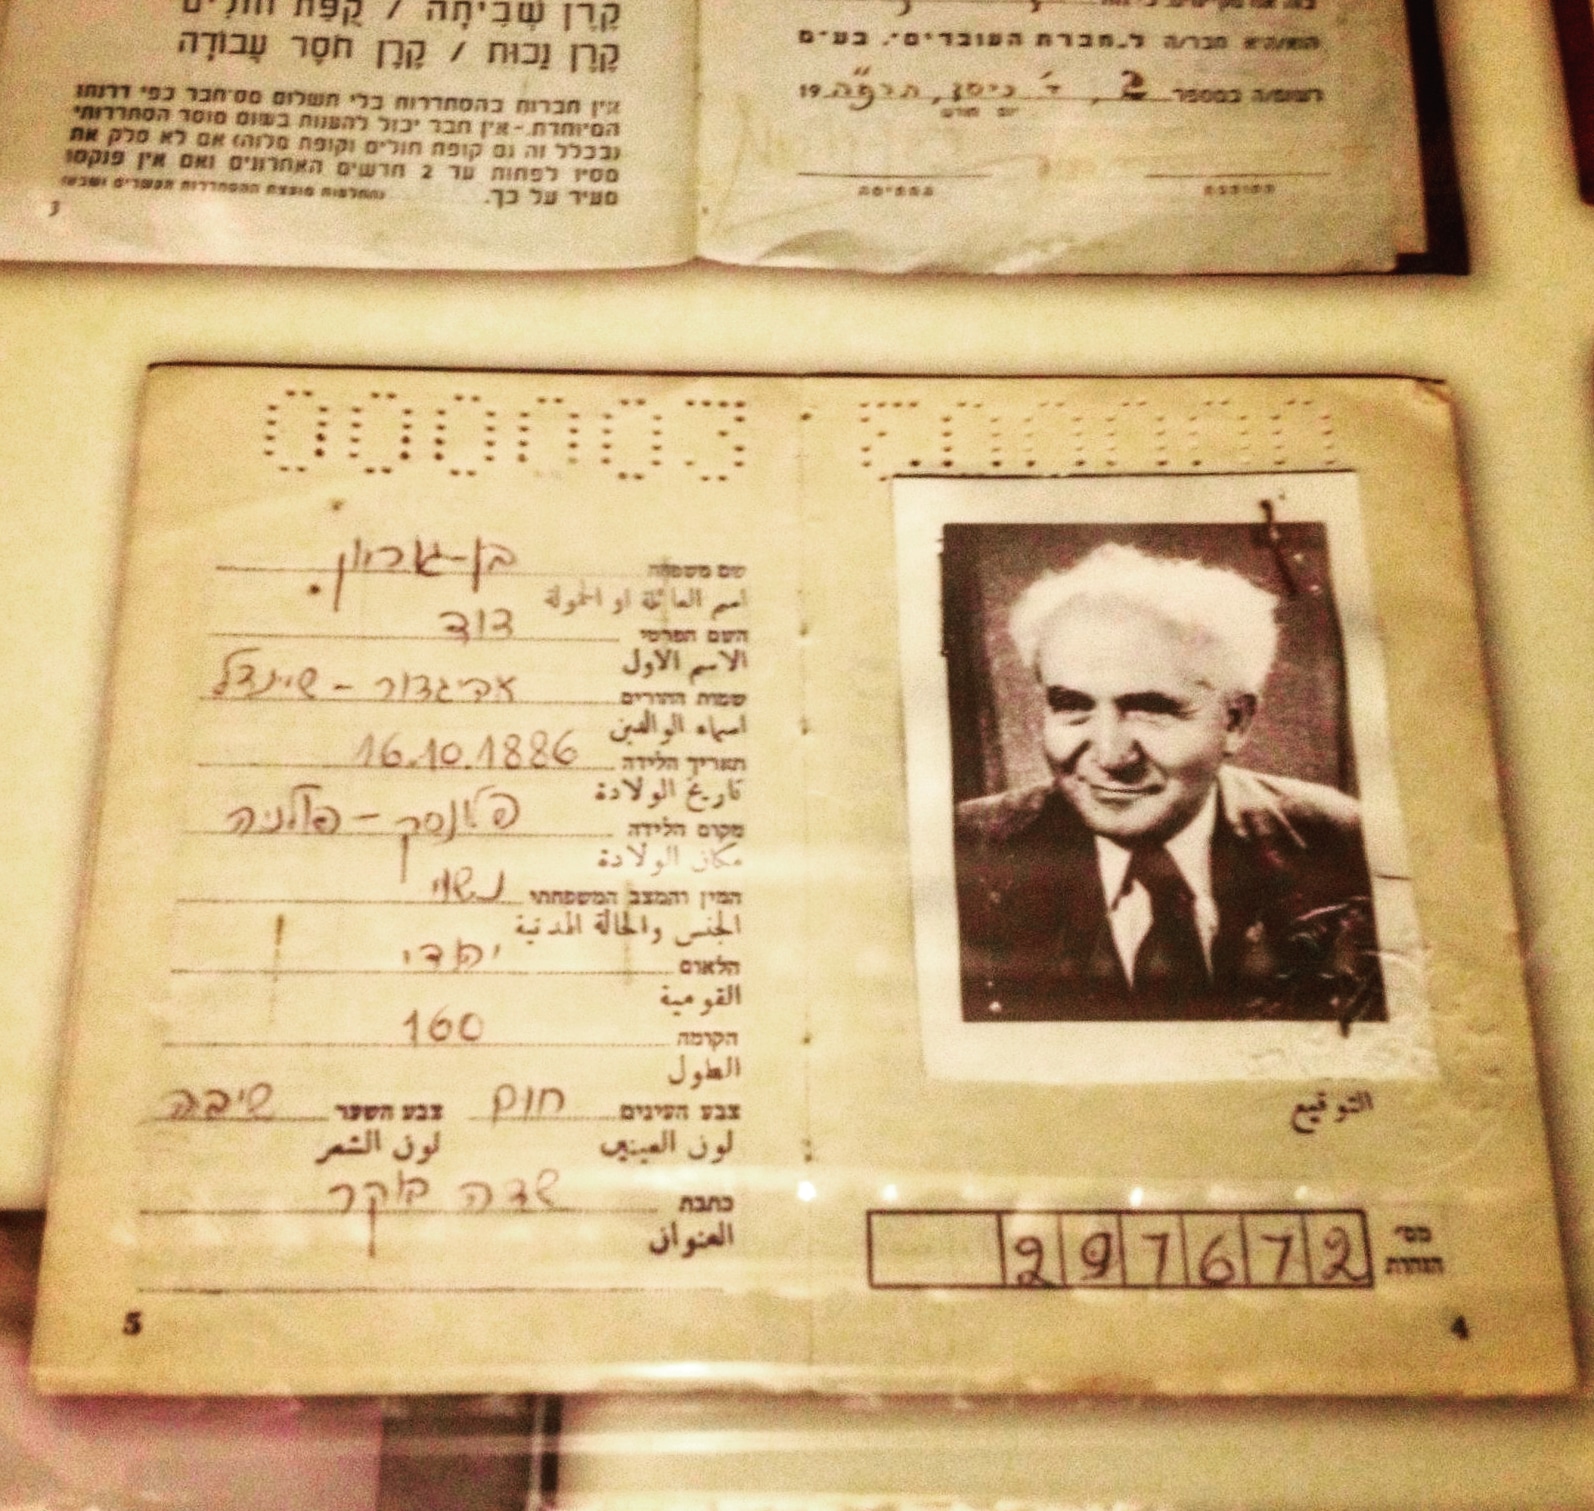 קֶרֶן שְׁבִיתָה / קֻפַּת חוֹלִים
קֶרֶן נָכוּת / קֶרֶן חֹסֶר עֲבוֹדָה
אין חברות בהסתדרות בלי תשלום מס־חבר כפי דרגתו
המיוחדת. – אין חבר יכול להענות בשום מוסד הסתדרותי
(ובכלל זה גם קופת חולים וקופת מלוה) אם לא סלק את
מסיו לפחות עד 2 חדשים האחרונים ואם אין פנקסו
מעיד על כך.
3
הוא/היא חבר/ה ל„חברת העובדים״, בע״מ
רשום/ה במספר 2, ד׳ ניסן, תרפ״ה 19
יום חודש
החותמת
החתימה
000003
000003
שם משפחה בן-גוריון
اسم العائلة او الحمولة
השם הפרטי דוד
الاسم الاول
שמות ההורים אביגדור - שיינדל
اسماء الوالدين
תאריך הלידה 16.10.1886
تاريخ الولادة
מקום הלידה פלונסק - פולניה
مكان الولادة
המין והמצב המשפחתי נשוי
الجنس والحالة المدنية
הלאום יהודי
القومية
הקומה 160
الطول
צבע העינים חום צבע השער שיבה
لون العينين لون الشعر
כתבת שדה בוקר
العنوان
5
التوقيع
מס׳ הזהות 297672
4